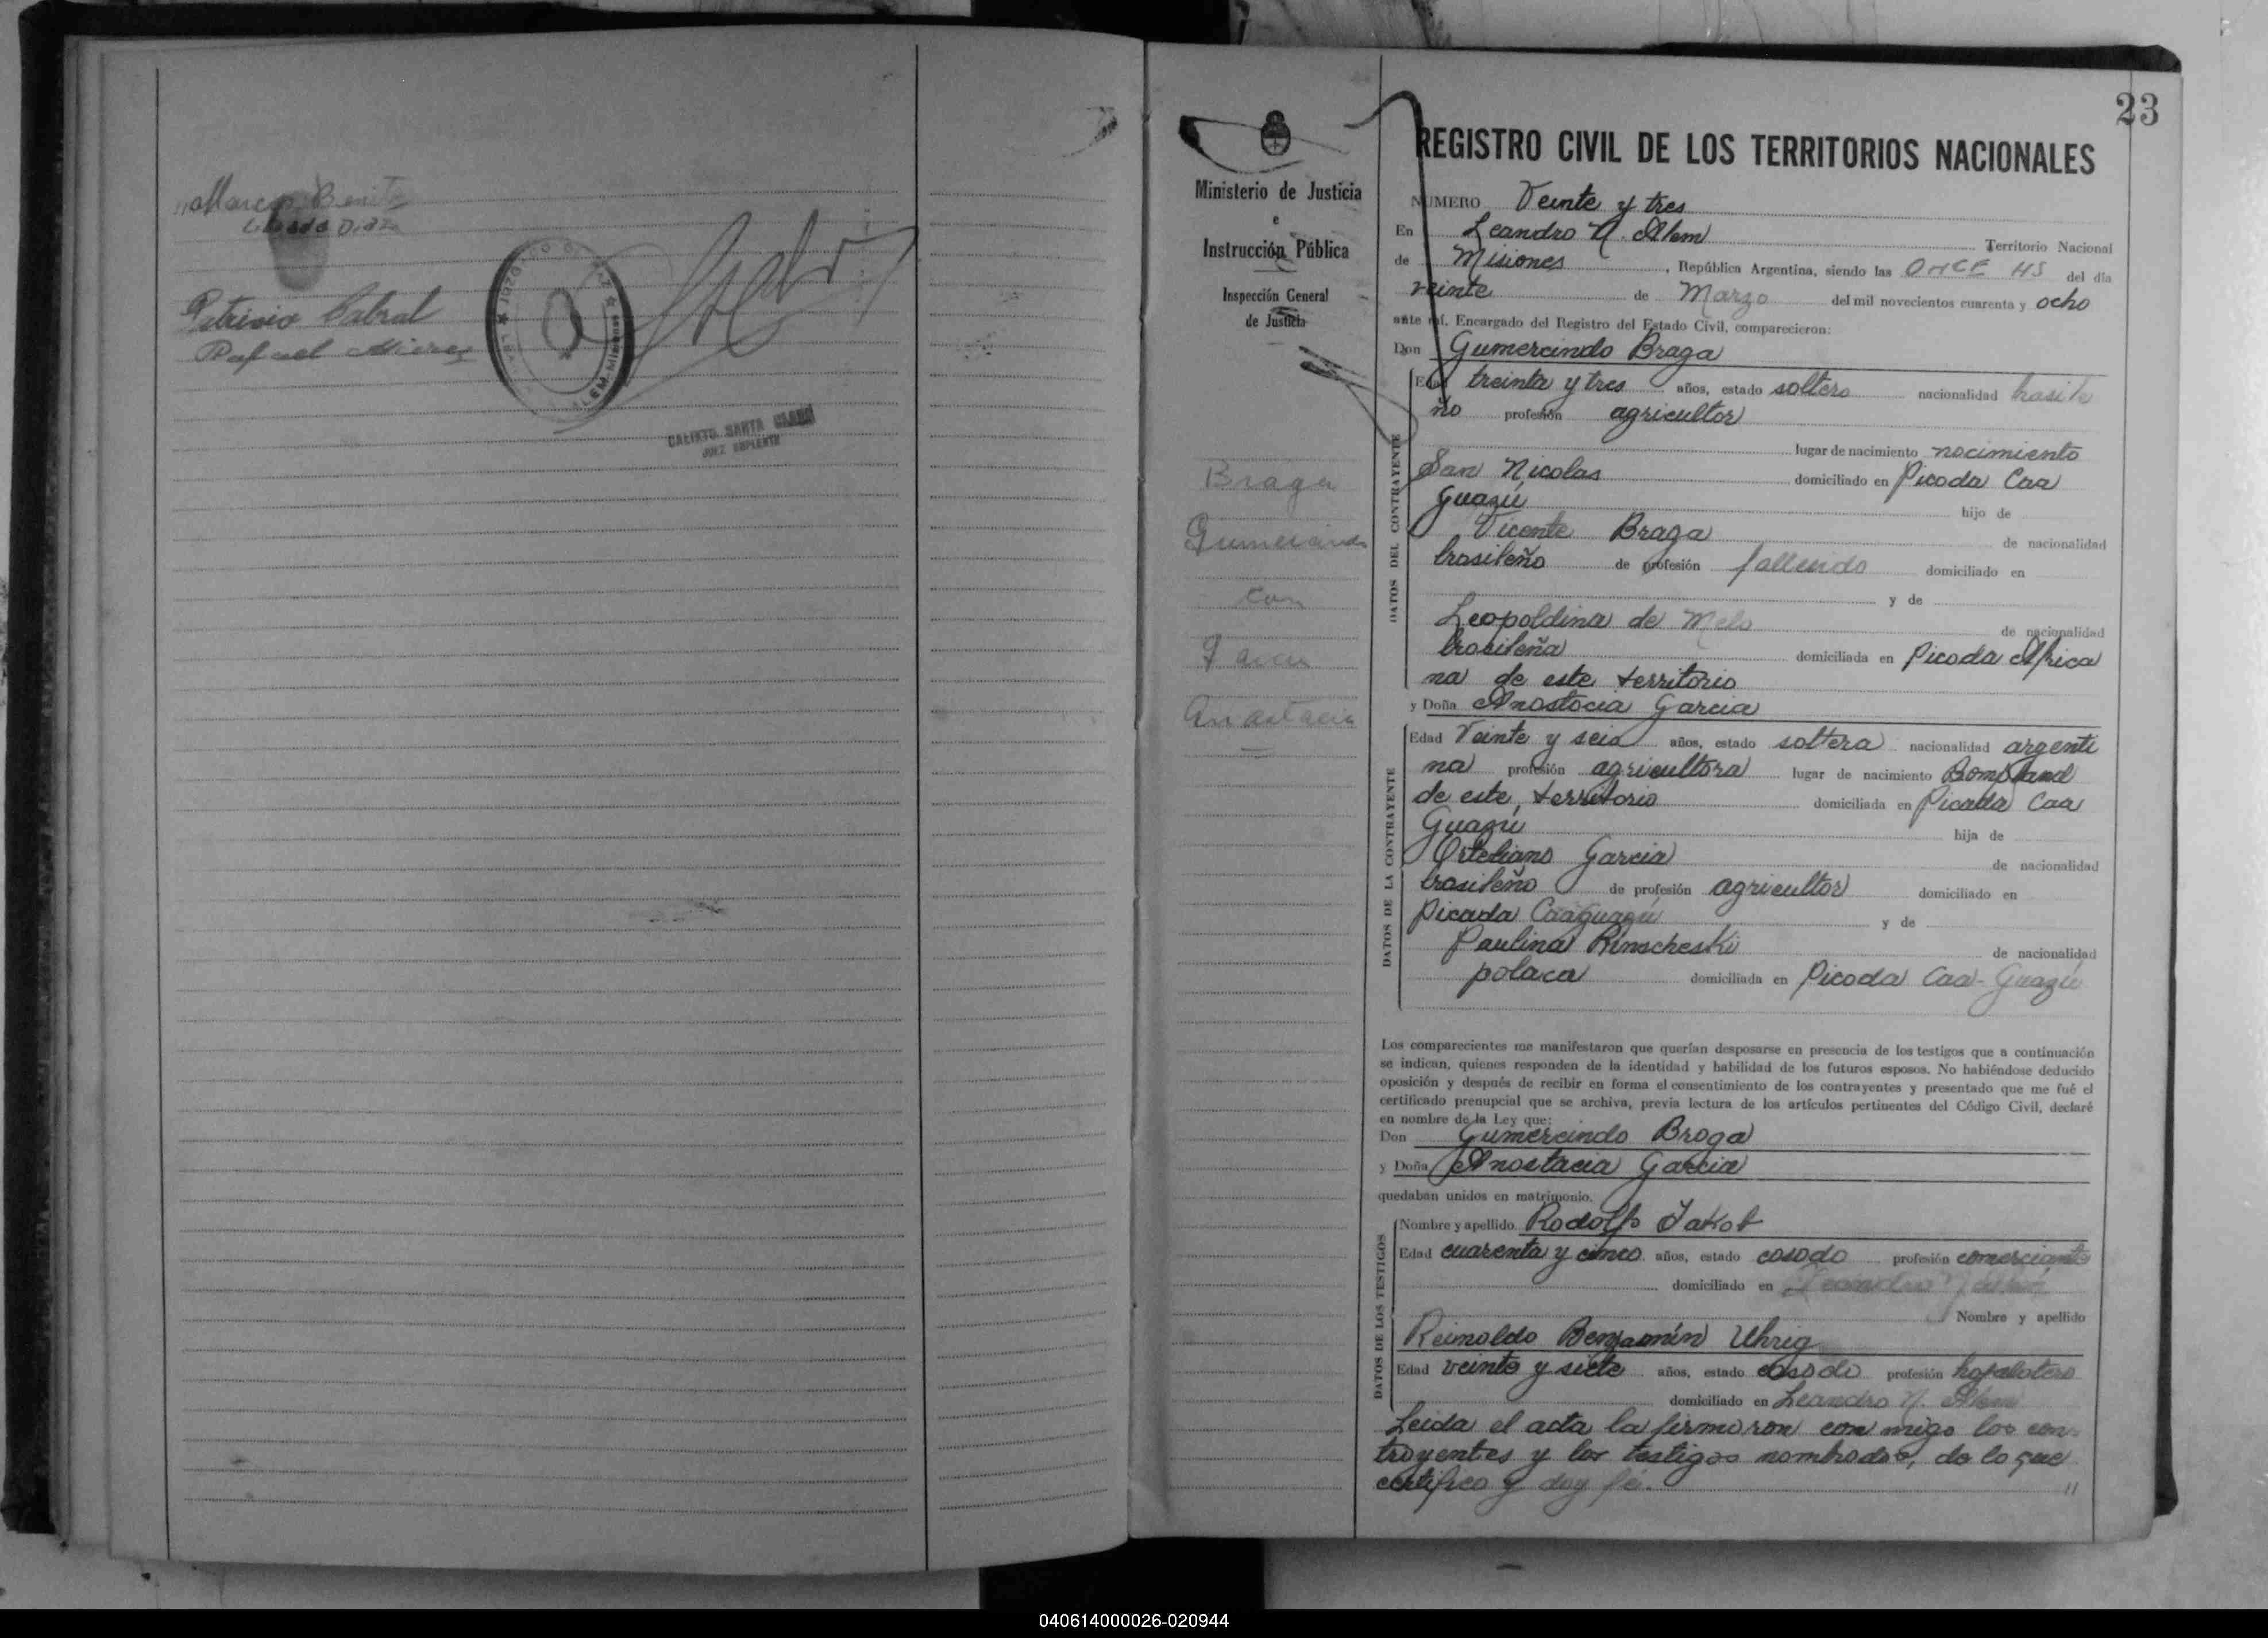 Marcos Benite
Librado Diaz
Patricio Cabral
Rafael Mieres
JUZGADO DE PAZ
ALEM. Misiones
CALIXTO SANTA
JUEZ SUPLENTE
23
Ministerio de Justicia
e
Instrucción Pública
Inspección General
de Justicia
Braga
Gumercindo
con
Garcia
Anastacia
REGISTRO CIVIL DE LOS TERRITORIOS NACIONALES
NUMERO Veinte y tres
En Leandro N. Alem Territorio Nacional
de Misiones, República Argentina, siendo las ONCE HS del día
veinte de Marzo del mil novecientos cuarenta y ocho
ante mí, Encargado del Registro del Estado Civil, comparecieron:
Don Gumercindo Braga
DATOS DEL CONTRAYENTE
Edad treinta y tres años, estado soltero nacionalidad brasile
ño profesión agricultor
lugar de nacimiento nacimiento
San Nicolas domiciliado en Picada Caa
Guazú hijo de
Vicente Braga de nacionalidad
brasileño de profesión fallecido domiciliado en
y de
Leopoldina de Melo de nacionalidad
brasileña domiciliada en Picada Africa
na de este territorio
y Doña Anastacia Garcia
DATOS DE LA CONTRAYENTE
Edad Veinte y seis años, estado soltera nacionalidad argenti
na profesión agricultora lugar de nacimiento Bompland
de este territorio domiciliada en Picada Caa
Guazú hija de
Garcia de nacionalidad
brasileño de profesión agricultor domiciliado en
Picada Caaguazú y de
Paulina Rinscheski de nacionalidad
polaca domiciliada en Picada Caa-Guazú
Los comparecientes me manifestaron que querían desposarse en presencia de los testigos que a continuación
se indican, quienes responden de la identidad y habilidad de los futuros esposos. No habiéndose deducido
oposición y después de recibir en forma el consentimiento de los contrayentes y presentado que me fué el
certificado prenupcial que se archiva, previa lectura de los artículos pertinentes del Código Civil, declaré
en nombre de la Ley que:
Don Gumercindo Braga
y Doña Anastacia Garcia
quedaban unidos en matrimonio.
DATOS DE LOS TESTIGOS
Nombre y apellido Rodolfo Jakob
Edad cuarenta y cinco años, estado casado profesión comerciante
domiciliado en Leandro N. Alem
Nombre y apellido
Reinoldo Benjamín Uhrig
Edad veinte y siete años, estado casado profesión hojalatero
domiciliado en Leandro N. Alem
Leida el acta la firmaron con migo los con-
trayentes y los testigos nombrados, de lo que
certifico y doy fé. "
040614000026-020944